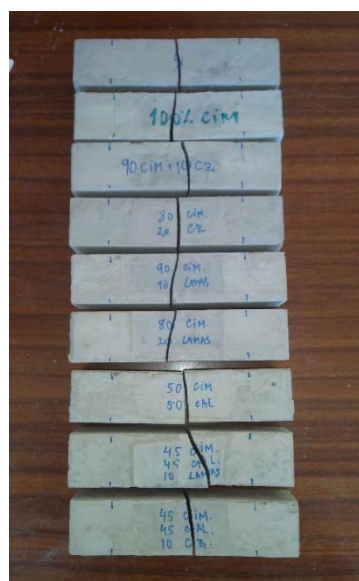 100% CiM
90 CiM + 10 CZ
80 CiM.
20 CZ
90 CiM.
10 LAMAS
80 CiM.
20 LAMAS
50 CiM
50 CAL
45 CiM.
45 CAL.
10 LAMAS
45 CiM.
45 CAL.
10 CZ.